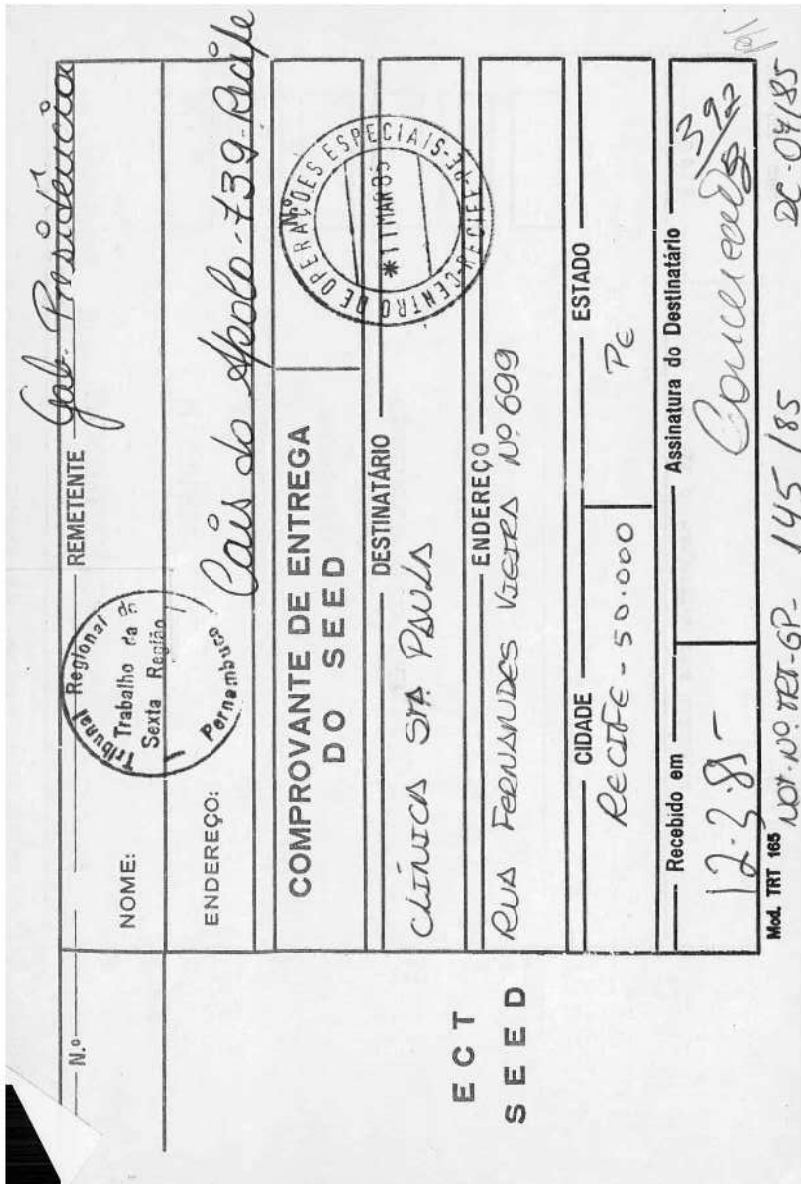 N.º REMETENTE Gab. Presidência
NOME:
Tribunal Regional do
Trabalho da
Sexta Região
Pernambuco
ENDEREÇO: Cais do Apolo-739-Recife
COMPROVANTE DE ENTREGA
DO SEED
N.º
CENTRO DE OPERAÇÕES ESPECIAIS-RECIFE
*11 MAR 85
ECT
SEED
DESTINATÁRIO
CLÍNICA STA PAULA
ENDEREÇO
RUA FERNANDES VIEIRA Nº 699
CIDADE ESTADO
RECIFE-50.000 PE
Recebido em Assinatura do Destinatário
12.3.85
Mod. TRT 165 NOT. Nº TRT-GP- 145/85 DC-04/85